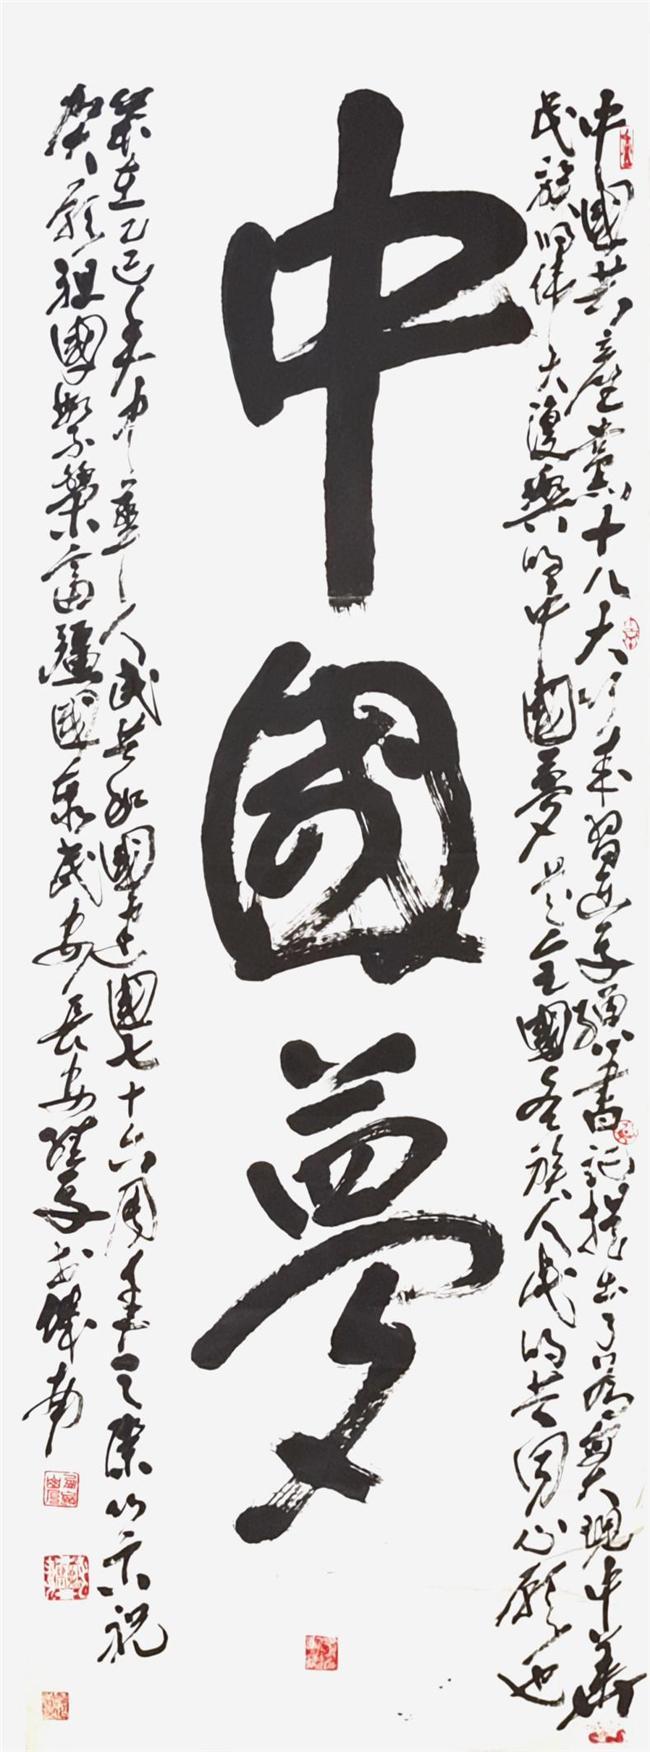 中國共產黨十八大以来習近平總書記提出了為實現中華
民族的偉大復興的中國夢是全國各族人民的共同心願也
中國夢
歲在乙巳年中華人民共和國建國七十六周年之際以示祝
賀願祖國繁榮富疆國泰民安長安於城南